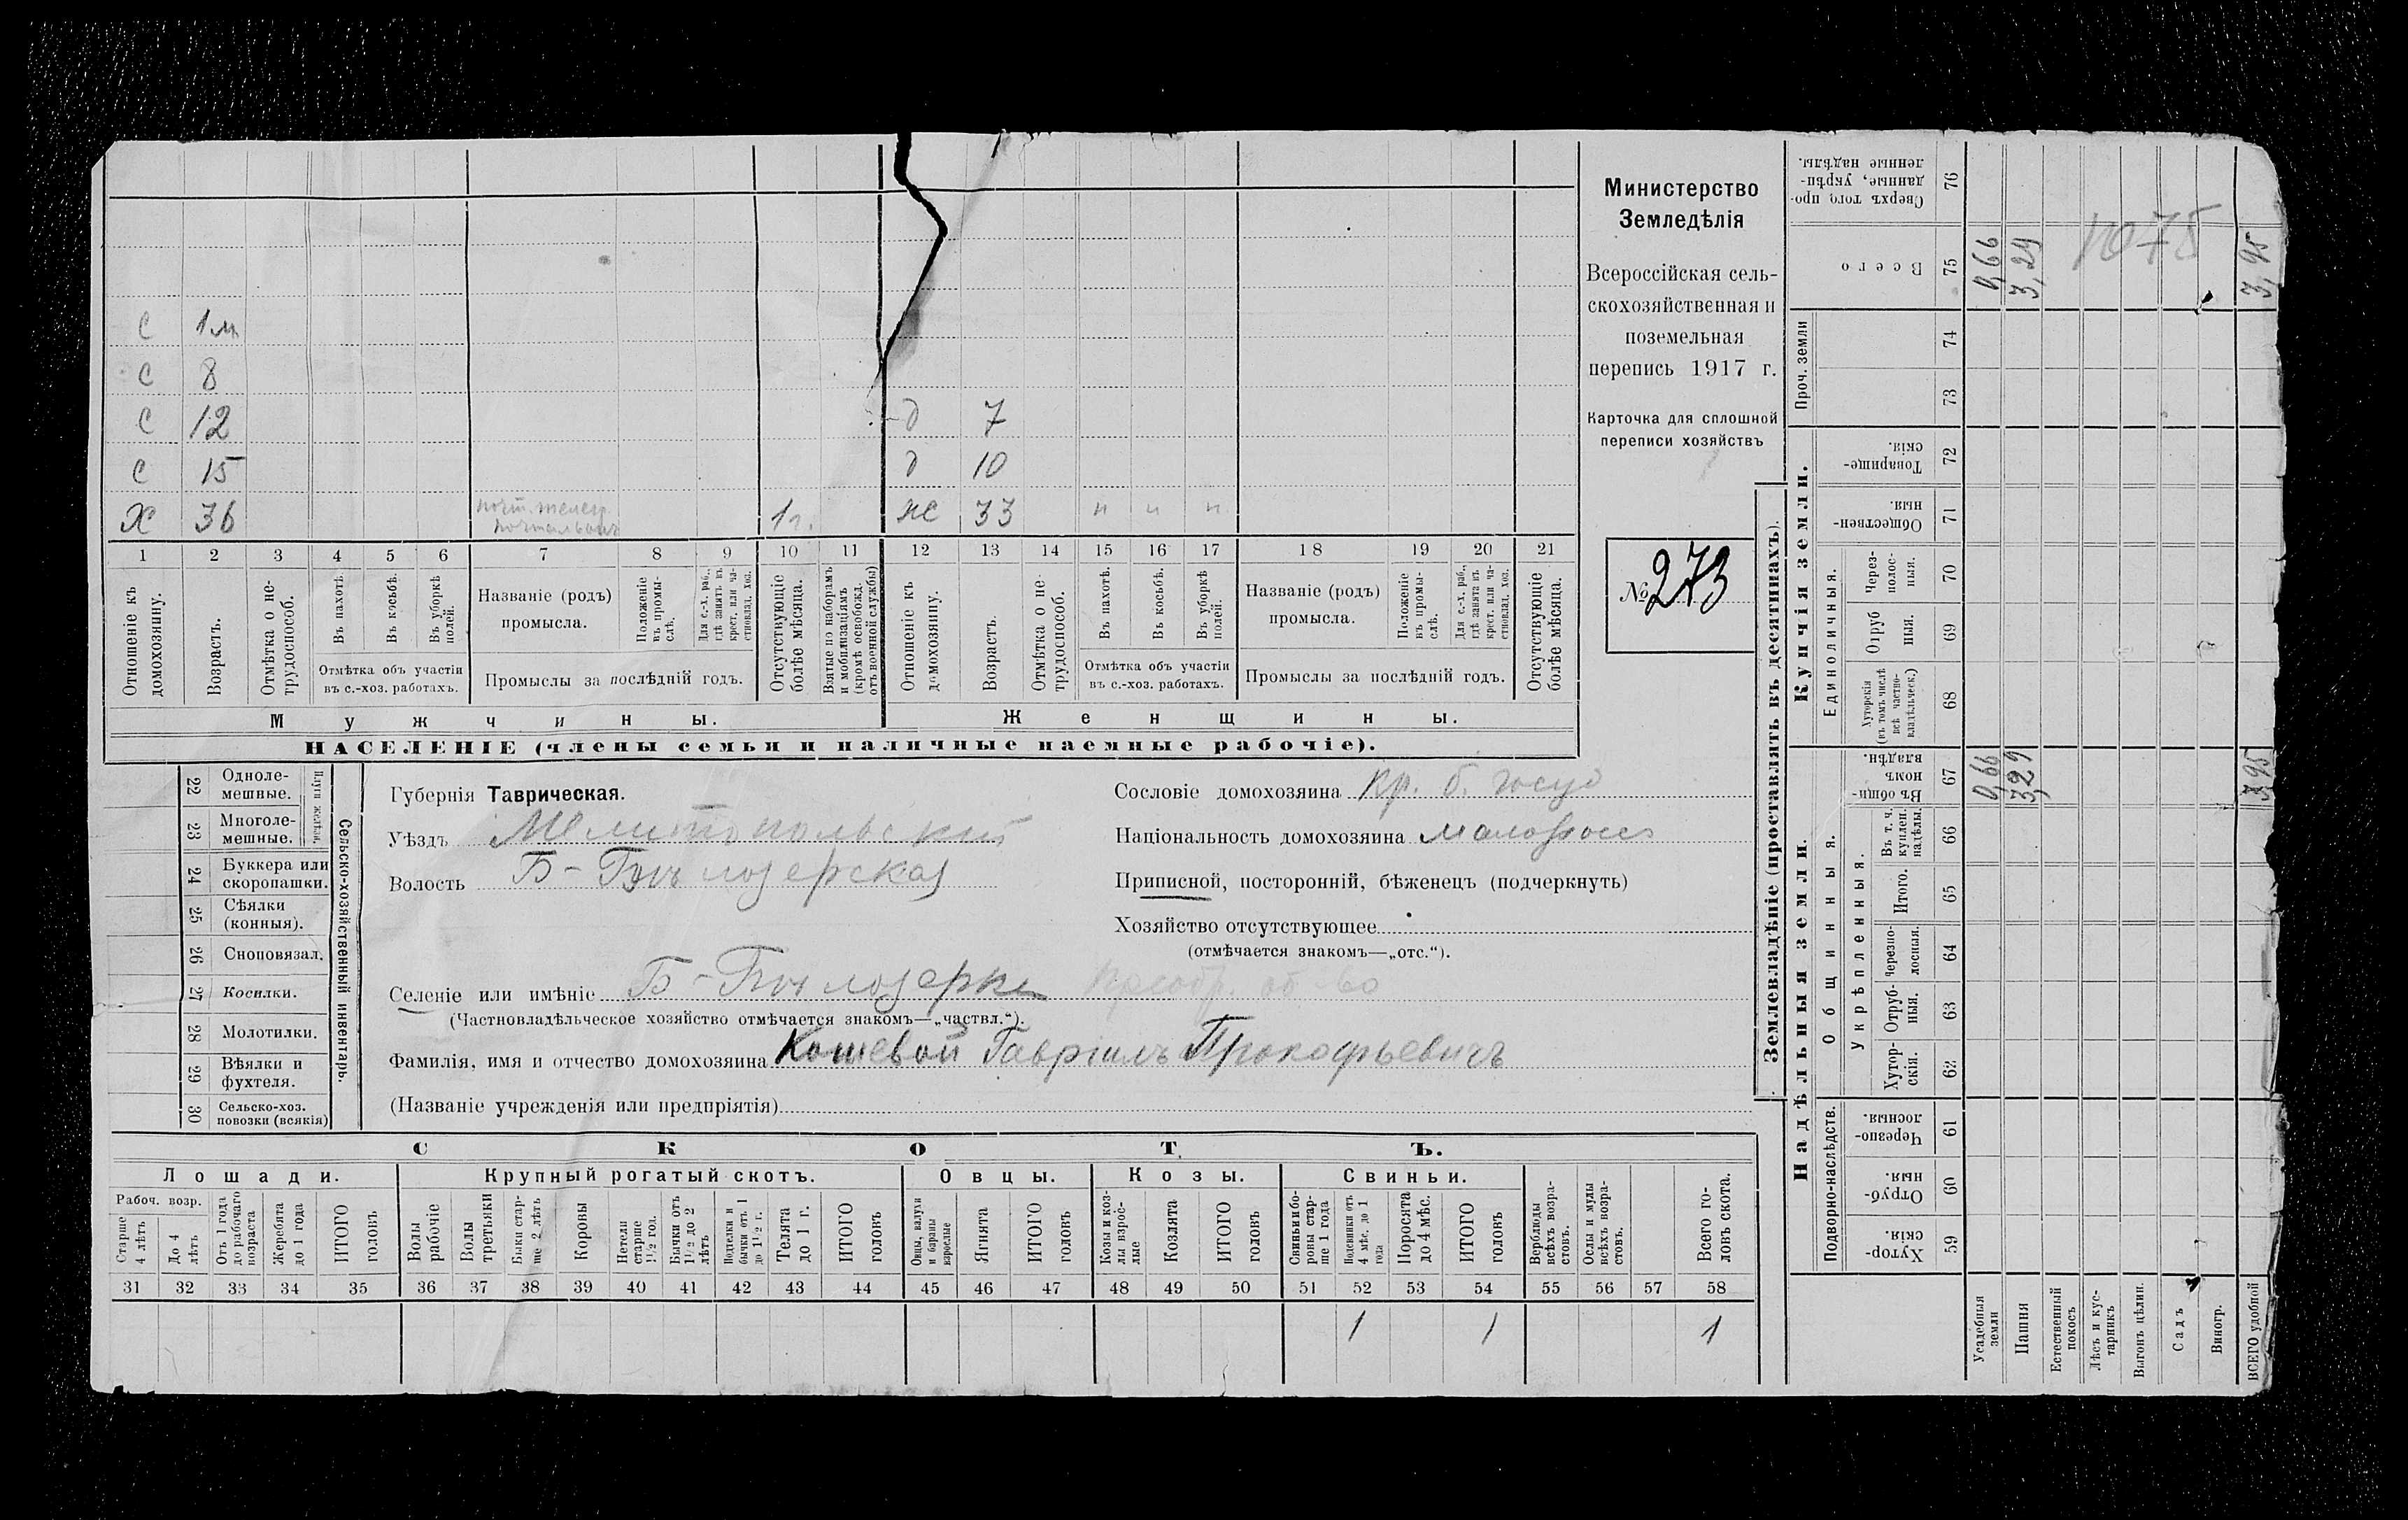 Министерство
Земледѣлія
Всероссійская сель-
скохозяйственная и
поземельная
перепись 1917 г.
Карточка для сплошной
переписи хозяйствъ
№ 273
С 1 м
С 8
С 12
С 15
Х 36 почт. телегр. почтальонъ 1 г.
д 7
д 10
же 33 п п п
1 2 3 4 5 6 7 8 9 10 11 12 13 14 15 16 17 18 19 20 21
Отношеніе къ домохозяину.
Возрастъ.
Отмѣтка о не-трудоспособ.
Въ пахотѣ.
Въ косьбѣ.
Въ уборкѣ полей.
Отмѣтка объ участіи въ с.-хоз. работахъ.
Названіе (родъ) промысла.
Положеніе въ промы-слѣ.
Для с.-х. раб., гдѣ занятъ въ крест. или ча-стновлад. хоз.
Промыслы за послѣдній годъ.
Отсутствующіе болѣе мѣсяца.
Взятые по наборамъ и мобилизаціямъ (кромѣ освобожд. отъ военной службы)
Отношеніе къ домохозяину.
Возрастъ.
Отмѣтка о не-трудоспособ.
Въ пахотѣ.
Въ косьбѣ.
Въ уборкѣ полей.
Отмѣтка объ участіи въ с.-хоз. работахъ.
Названіе (родъ) промысла.
Положеніе въ промы-слѣ.
Для с.-х. раб., гдѣ занята въ крест. или ча-стновлад. хоз.
Промыслы за послѣдній годъ.
Отсутствующіе болѣе мѣсяца.
Мужчины.
Женщины.
НАСЕЛЕНІЕ (члены семьи и наличные наемные рабочіе).
22 Одноле-мешные.
23 Многоле-мешные.
Плуги желѣзн.
24 Буккера или скоропашки.
25 Сѣялки (конныя).
26 Сноповязал.
27 Косилки.
28 Молотилки.
29 Вѣялки и фухтеля.
30 Сельско-хоз. повозки (всякія)
Сельско-хозяйственный инвентарь.
Губернія Таврическая.
Уѣздъ Мелитопольскій
Волость Б-Бѣлозерская
Селеніе или имѣніе Б-Бѣлозерка Преобр. об-во
(Частновладѣльческое хозяйство отмѣчается знакомъ—„частвл.“).
Фамилія, имя и отчество домохозяина Кошевой Гавріилъ Прокофьевичъ
(Названіе учрежденія или предпріятія)
Сословіе домохозяина кр. б. госуд
Національность домохозяина малороссъ
Приписной, посторонній, бѣженецъ (подчеркнуть)
Хозяйство отсутствующее
(отмѣчается знакомъ—„отс.“).
СКОТЪ.
Лошади. Крупный рогатый скотъ. Овцы. Козы. Свиньи.
Рабоч. возр.
Старше 4 лѣтъ
До 4 лѣтъ
Отъ 1 года до рабочаго возраста
Жеребята до 1 года
ИТОГО головъ
Волы рабочіе
Волы третьяки
Быки стар-ше 2 лѣтъ
Коровы
Нетели старше 1½ год.
Бычки отъ 1½ до 2 лѣтъ
Подтелки и бычки отъ 1 до 1½ г.
Телята до 1 г.
ИТОГО головъ
Овцы, валухи и бараны взрослые
Ягнята
ИТОГО головъ
Козы и коз-лы взрос-лые
Козлята
ИТОГО головъ
Свиньи и бо-ровы стар-ше 1 года
Подсвинки отъ 4 мѣс. до 1 года
Поросята до 4 мѣс.
ИТОГО головъ
Верблюды всѣхъ возра-стовъ.
Ослы и мулы всѣхъ возра-стовъ.
Всего го-ловъ скота.
31 32 33 34 35 36 37 38 39 40 41 42 43 44 45 46 47 48 49 50 51 52 53 54 55 56 57 58
1 1 1
Землевладѣніе (проставлять въ десятинахъ).
Надѣльныя земли.
Купчія земли.
Проч. земли
Подворно-наслѣдств.
Общинныя.
Укрѣпленныя.
Единоличныя.
Хутор-скія. 59
Отруб-ныя. 60
Черезпо-лосныя. 61
Хутор-скія. 62
Отруб-ныя. 63
Черезпо-лосныя. 64
Итого. 65
Въ т. ч. куплен. надѣлы. 66
Въ общи-номъ владѣн. 67
Хуторскія (въ томъ числѣ всѣ частно-владѣльческ.) 68
Отруб ныя. 69
Через-полос-ныя. 70
Обществен-ныя. 71
Товарище-скія. 72
73
74
Всего 75
Сверхъ того про-данные, укрѣп-ленные надѣлы. 76
Усадебныя земли 0,66 0,66
Пашня 3,29 3,29
Естественный покосъ
Лѣсъ и кус-тарникъ
Выгонъ цѣлин.
Садъ
Виногр.
ВСЕГО удобной 3,95 3,95
1075